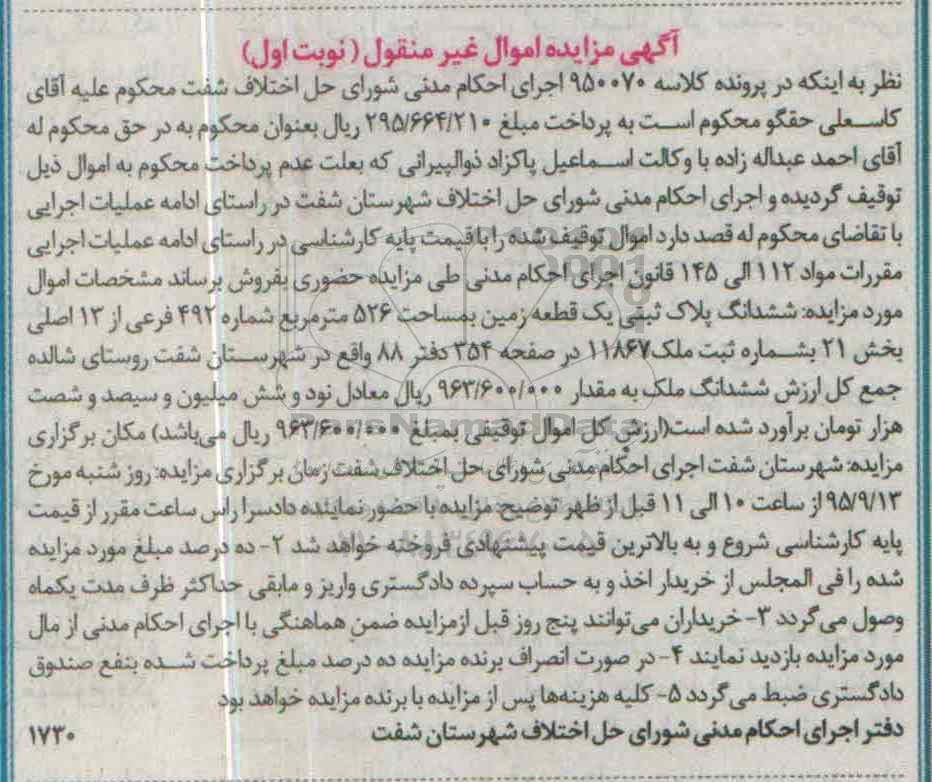 آگهی مزایده اموال غیر منقول ( نوبت اول)
نظر به اینکه در پرونده کلاسه ۹۵۰۰۷۰ اجرای احکام مدنی شورای حل اختلاف شفت محکوم علیه آقای
کاسعلی حقگو محکوم است به پرداخت مبلغ ۲۹۵/۶۶۴/۲۱۰ ریال بعنوان محکوم به در حق محکوم له
آقای احمد عبداله زاده با وکالت اسماعیل پاکزاد ذوالپیرانی که بعلت عدم پرداخت محکوم به اموال ذیل
توقیف گردیده و اجرای احکام مدنی شورای حل اختلاف شهرستان شفت در راستای ادامه عملیات اجرایی
با تقاضای محکوم له قصد دارد اموال توقیف شده را با قیمت پایه کارشناسی در راستای ادامه عملیات اجرایی
مقررات مواد ۱۱۲ الی ۱۴۵ قانون اجرای احکام مدنی طی مزایده حضوری بفروش برساند مشخصات اموال
مورد مزایده: ششدانگ پلاک ثبتی یک قطعه زمین بمساحت ۵۲۶ مترمربع شماره ۴۹۲ فرعی از ۱۳ اصلی
بخش ۲۱ بشماره ثبت ملک ۱۱۸۶۷ در صفحه ۳۵۴ دفتر ۸۸ واقع در شهرستان شفت روستای شالده
جمع کل ارزش ششدانگ ملک به مقدار ۹۶۳/۶۰۰/۰۰۰ ریال معادل نود و شش میلیون و سیصد و شصت
هزار تومان برآورد شده است(ارزش کل اموال توقیفی بمبلغ ۹۶۳/۶۰۰/۰۰۰ ریال می‌باشد) مکان برگزاری
مزایده: شهرستان شفت اجرای احکام مدنی شورای حل اختلاف شفت زمان برگزاری مزایده: روز شنبه مورخ
۹۵/۹/۱۳ از ساعت ۱۰ الی ۱۱ قبل از ظهر توضیح: مزایده با حضور نماینده دادسرا راس ساعت مقرر از قیمت
پایه کارشناسی شروع و به بالاترین قیمت پیشنهادی فروخته خواهد شد ۲- ده درصد مبلغ مورد مزایده
شده را فی المجلس از خریدار اخذ و به حساب سپرده دادگستری واریز و مابقی حداکثر ظرف مدت یکماه
وصول می‌گردد ۳- خریداران می‌توانند پنج روز قبل ازمزایده ضمن هماهنگی با اجرای احکام مدنی از مال
مورد مزایده بازدید نمایند ۴- در صورت انصراف برنده مزایده ده درصد مبلغ پرداخت شده بنفع صندوق
دادگستری ضبط می‌گردد ۵- کلیه هزینه‌ها پس از مزایده با برنده مزایده خواهد بود
دفتر اجرای احکام مدنی شورای حل اختلاف شهرستان شفت ۱۷۳۰